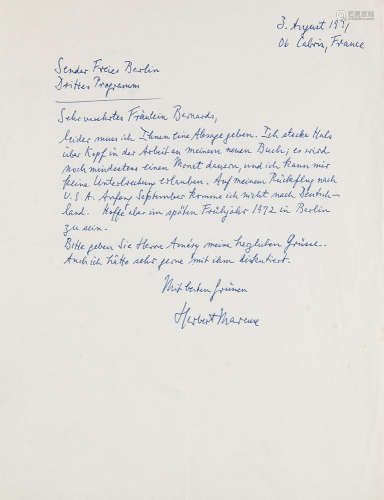 3. August 1971
06 Cabris, France
Sender Freies Berlin
Drittes Programm
Sehr verehrtes Fräulein Bernards,
leider muss ich Ihnen eine Absage geben. Ich stecke Hals
über Kopf in der Arbeit an meinem neuen Buch; es wird
noch mindestens einen Monat dauern, und ich kann mir
keine Unterbrechung erlauben. Auf meinem Rückflug nach
U.S.A. Anfang September komme ich nicht nach Deutsch-
land. Hoffe aber im späten Frühjahr 1972 in Berlin
zu sein.
Bitte geben Sie Herrn Améry meine herzlichen Grüsse.
Auch ich hätte sehr gerne mit ihm diskutiert.
Mit besten Grüssen
Herbert Marcuse